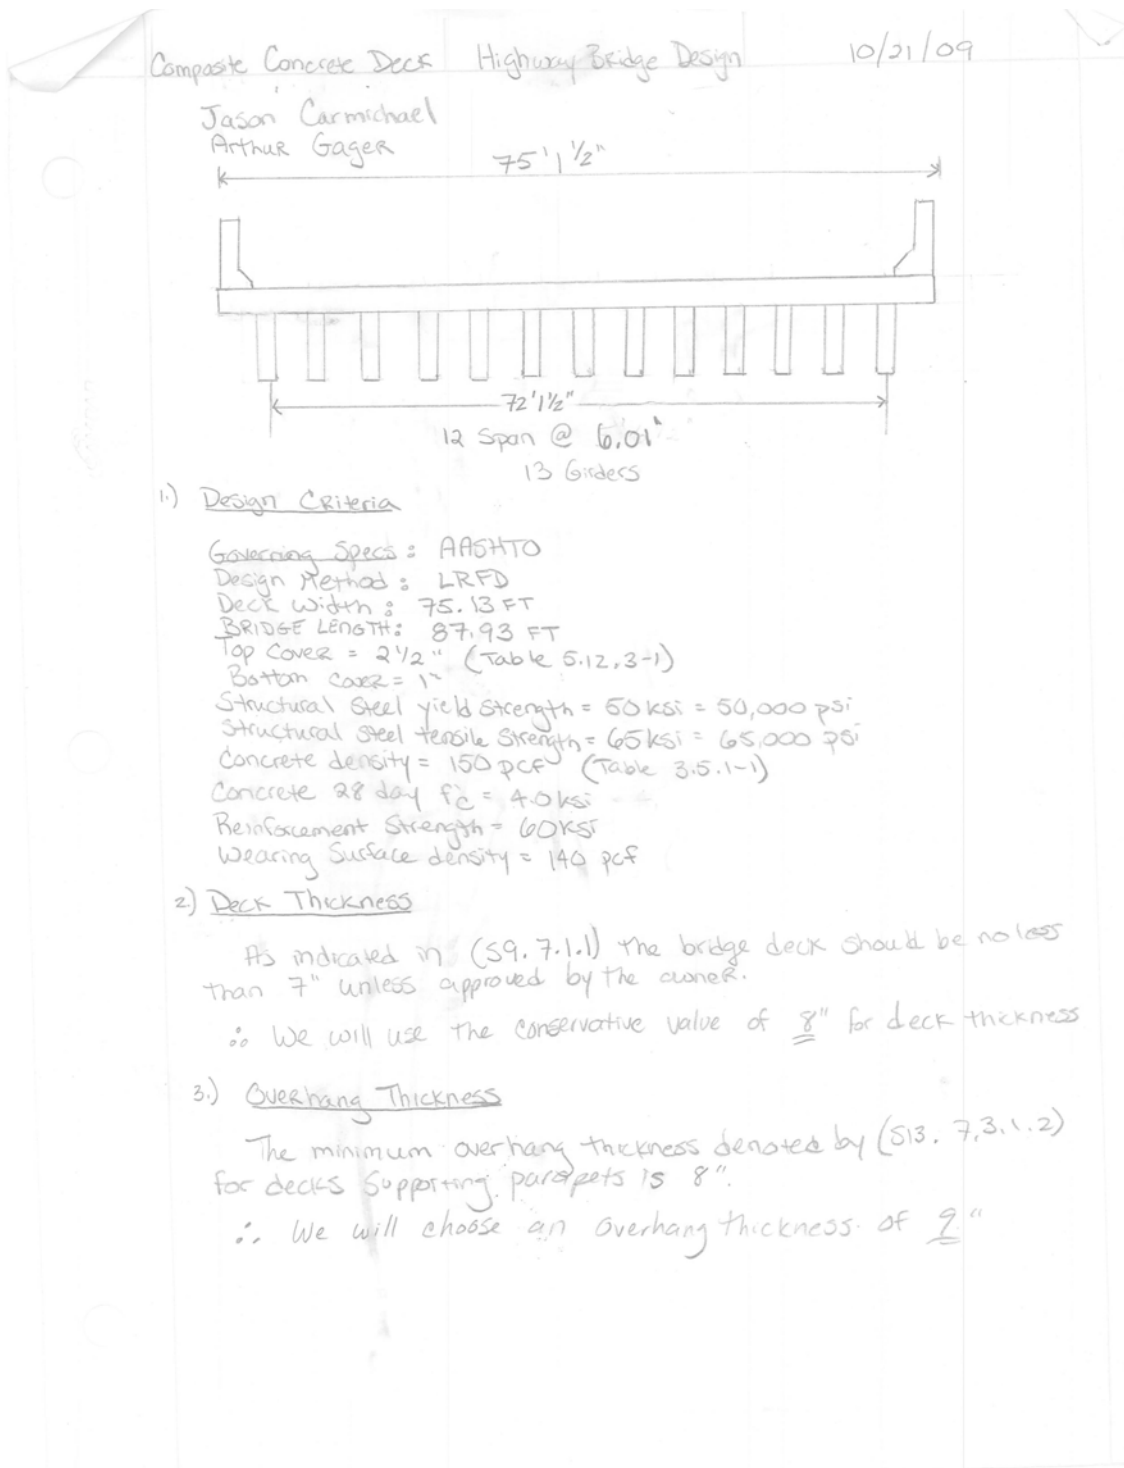 Composite Concrete Deck Highway Bridge Design 10/21/09
Jason Carmichael
Arthur Gager
75'1 1/2"
72'1 1/2"
12 Span @ 6.01'
13 Girders
1.) Design Criteria
Governing Specs: AASHTO
Design Method: LRFD
Deck Width: 75.13 FT
BRIDGE LENGTH: 87.93 FT
Top Cover = 2 1/2" (Table 5.12.3-1)
Bottom Cover = 1"
Structural Steel yield Strength = 50 ksi = 50,000 psi
Structural Steel tensile Strength = 65 ksi = 65,000 psi
Concrete density = 150 pcf (Table 3.5.1-1)
Concrete 28 day f'c = 4.0 ksi
Reinforcement Strength = 60 ksi
Wearing Surface density = 140 pcf
2.) Deck Thickness
As indicated in (S9.7.1.1) the bridge deck should be no less
than 7" unless approved by the owner.
∴ We will use the conservative value of 8" for deck thickness
3.) Overhang Thickness
The minimum overhang thickness denoted by (S13.7.3.1.2)
for decks supporting parapets is 8".
∴ We will choose an overhang thickness of 9"